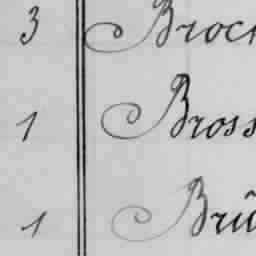 3 Brock
1 Bross
1 Brû